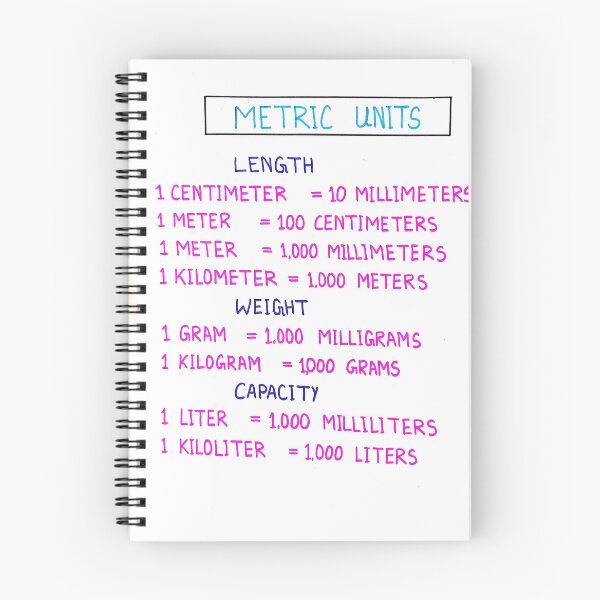 METRIC UNITS
LENGTH
1 CENTIMETER = 10 MILLIMETERS
1 METER = 100 CENTIMETERS
1 METER = 1,000 MILLIMETERS
1 KILOMETER = 1,000 METERS
WEIGHT
1 GRAM = 1,000 MILLIGRAMS
1 KILOGRAM = 1,000 GRAMS
CAPACITY
1 LITER = 1,000 MILLILITERS
1 KILOLITER = 1,000 LITERS